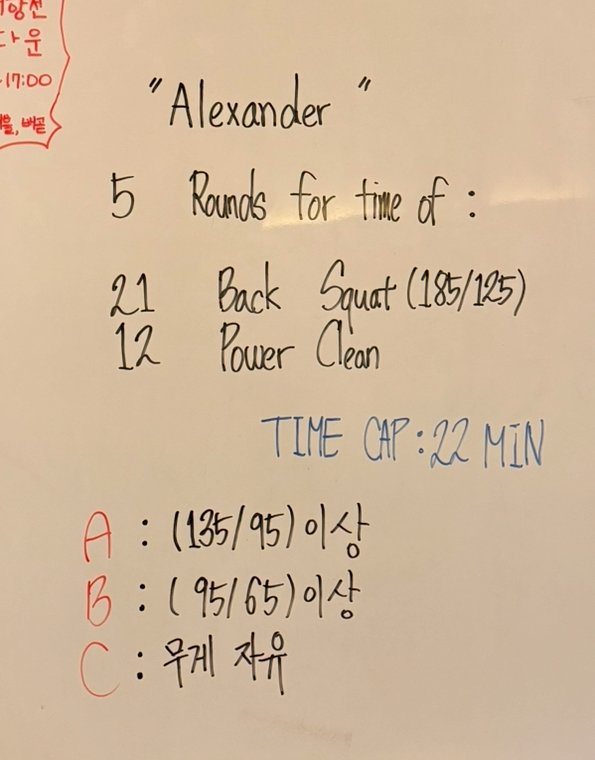 다운
17:00
"Alexander"
5 Rounds for time of :
21 Back Squat (185/125)
12 Power Clean
TIME CAP : 22 MIN
A : (135/95) 이상
B : (95/65) 이상
C : 무게 자유